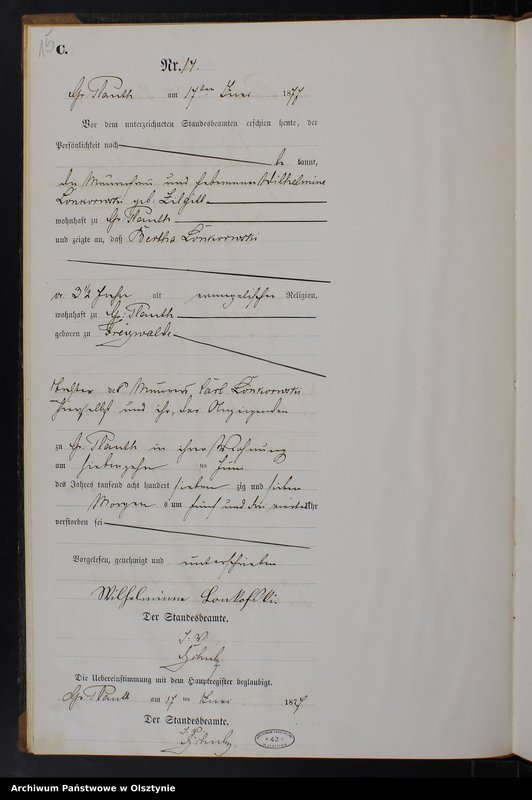 15
C.
Nr. 17.
Gr: Plauth am 17ten Juni 1877
Vor dem unterzeichneten Standesbeamten erschien heute, der
Persönlichkeit nach
be kannt,
die Maurerfrau und Hebamme Wilhelmine
geb.
wohnhaft zu Gr: Plauth
und zeigte an, daß Bertha
3½ Jahr alt evangelischer Religion,
wohnhaft zu Gr: Plauth
geboren zu Freywalde
Tochter des Maurers Carl
hierselbst und ihr, der Anzeigenden
zu Gr: Plauth in ihrer Wohnung
am siebenzehn ten Juni
des Jahres tausend acht hundert sieben zig und sieben
Morgens um fünf und drei viertel Uhr
verstorben sei
Vorgelesen, genehmigt und unterschrieben
Wilhelmine
Der Standesbeamte.
I. V.
Die Uebereinstimmung mit dem Hauptregister beglaubigt.
Gr: Plauth am 17 ten Juni 1877
Der Standesbeamte.
I. V.
42
Archiwum Państwowe w Olsztynie